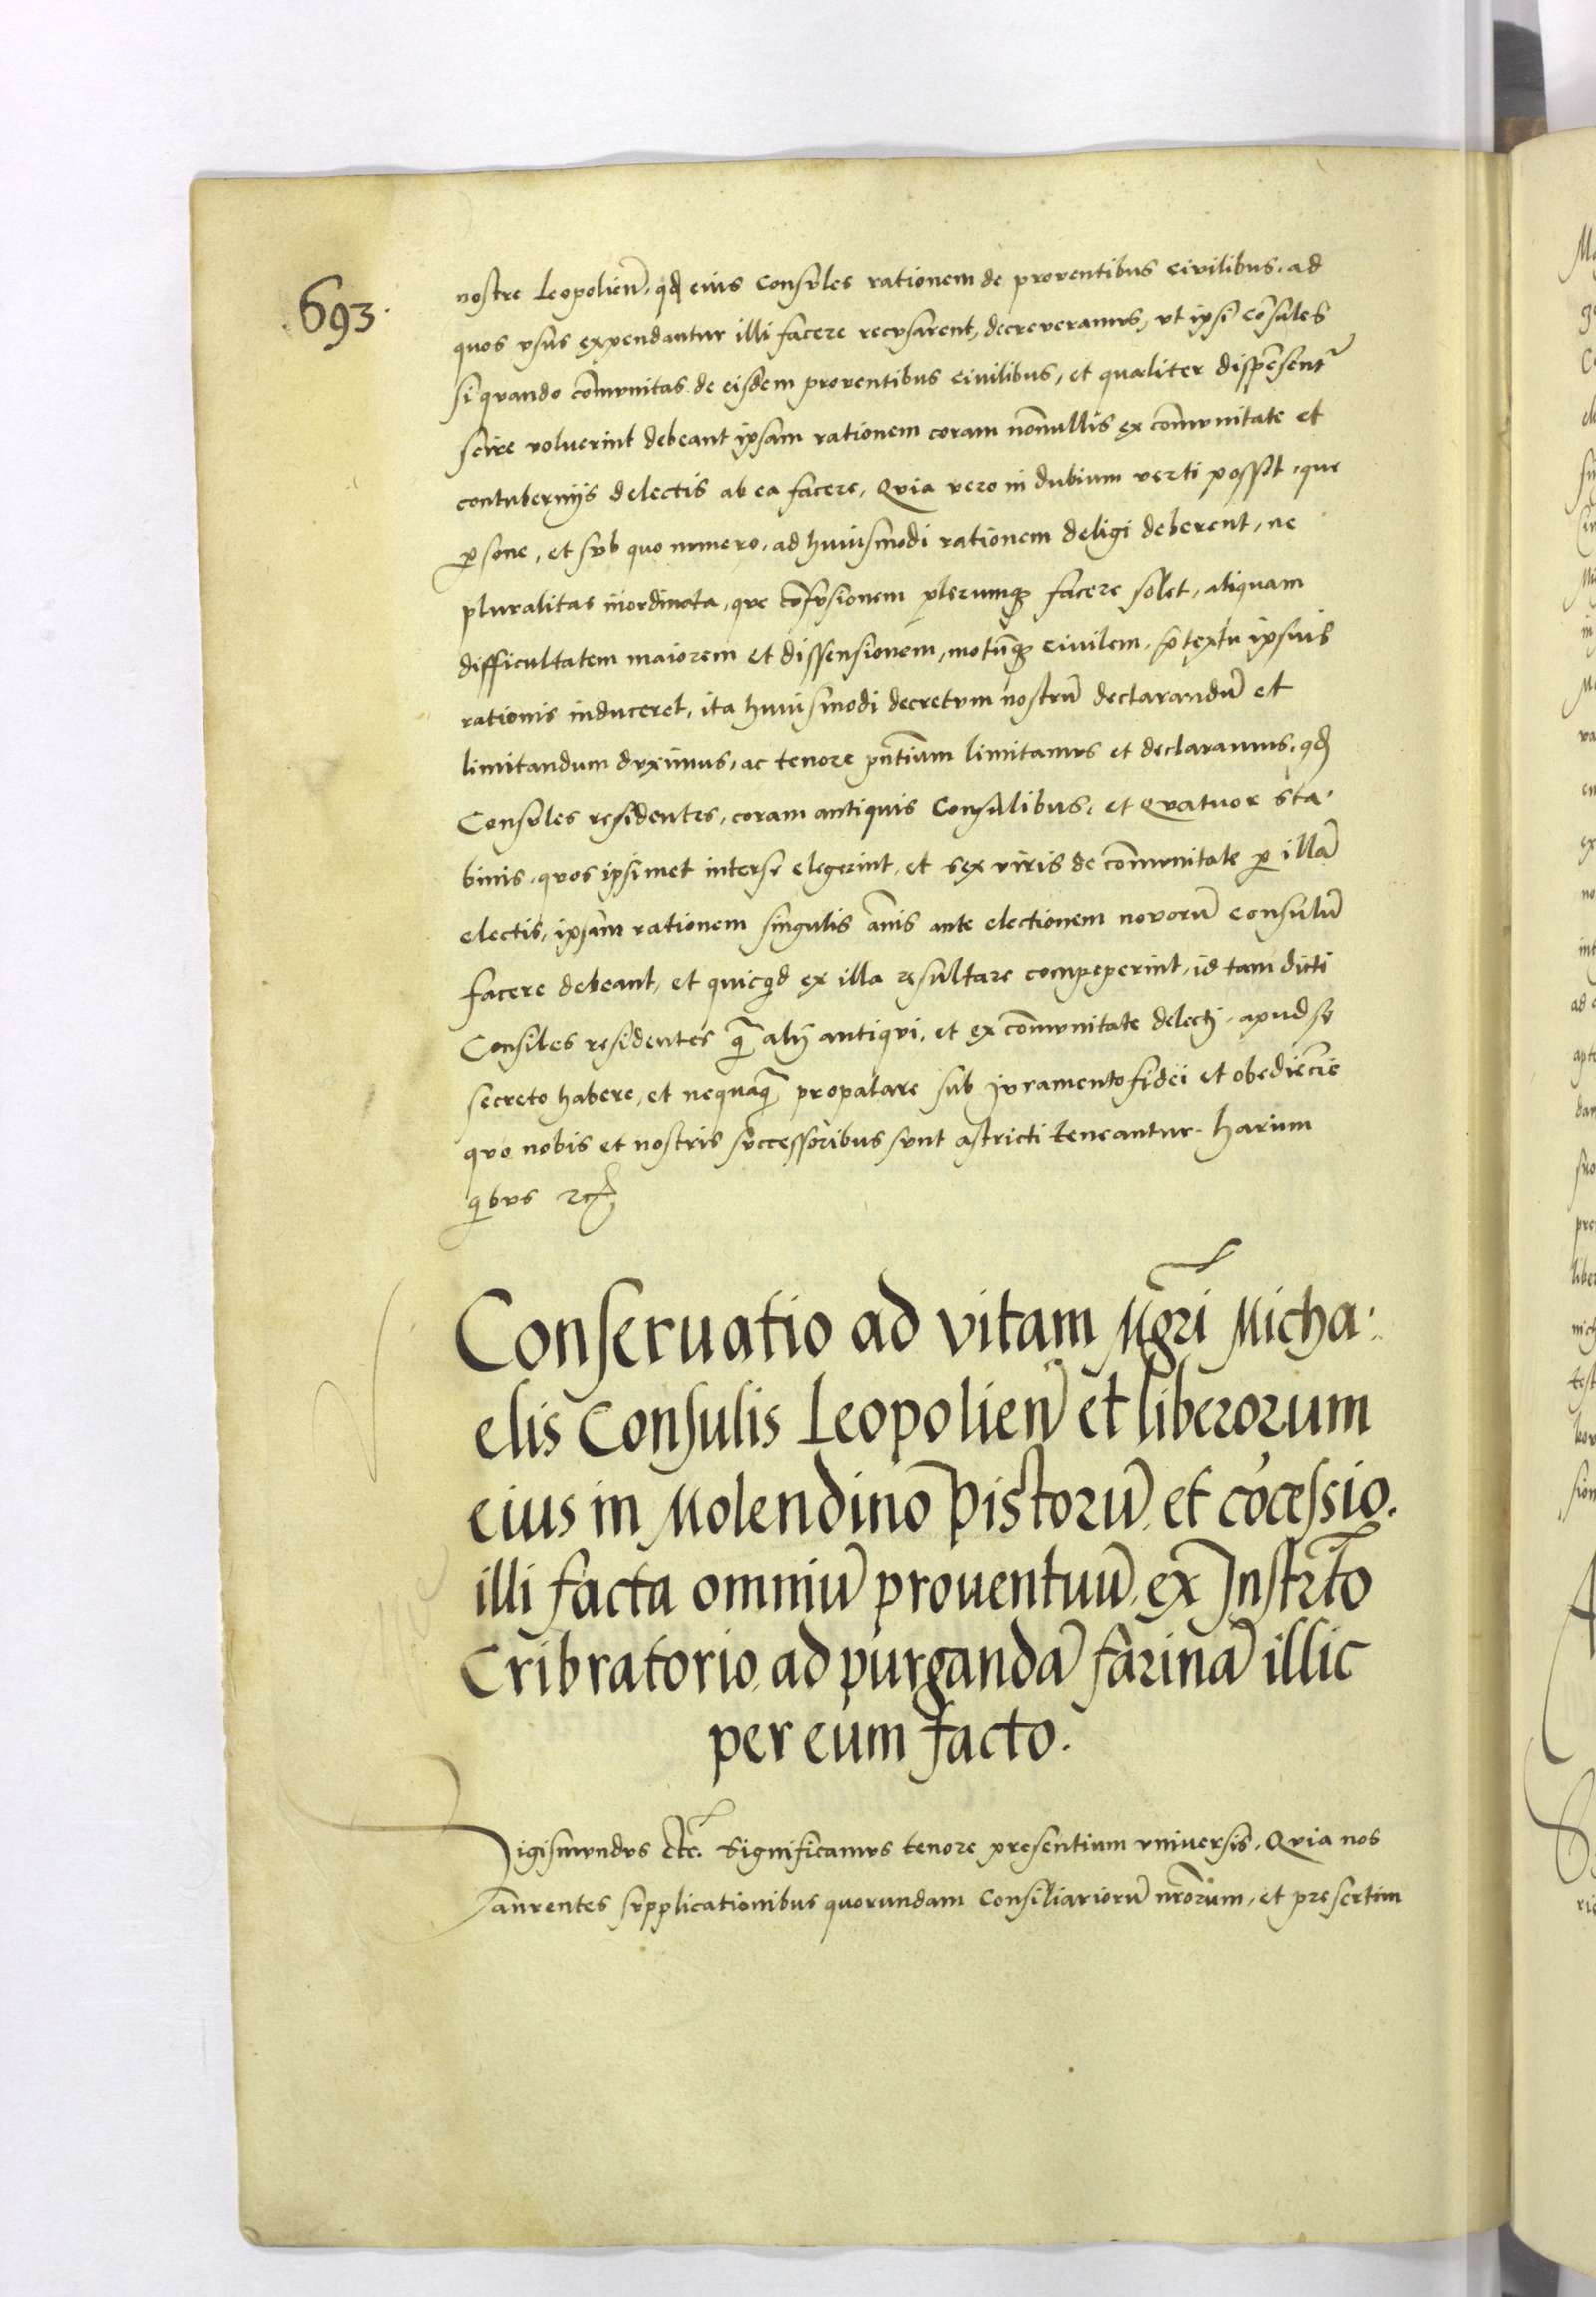 .693.
nostre Leopolien̄. qd̨ eius Consules rationem de proventibus civilibus, ad
quos usus expendantur illi facere recusarent, decreveramus, ut ipsi cōsules
si quando com̄unitas de eisdem proventibus civilibus, et qualiter dispēsent᷑
scire voluerint debeant ipsam rationem coram nōnullis ex com̄unitate et
contubernijs delectis ab ea facere, Quia vero in dubium verti possit, que
ꝑsone, et sub quo numero, ad huiusmodi rationem deligi deberent, ne
pluralitas inordinata, que cōfusionem plerumqȝ facere solet, aliquam
difficultatem maiorem et dissensionem, motūqȝ civilem, p̄textu ipsius
rationis induceret, ita huiusmodi decretum nostrū declarandū et
limitandum duximus, ac tenore pn̄tium limitamus et declaramus, qd̨
Consules residentes, coram antiquis Consulibus, et Quatuor sca-
binis, quos ipsimet inter se elegerint, et sex viris de com̄unitate ꝑ illā
electis, ipsam rationem singulis ānis ante electionem novorū consulū
facere debeant, et quicqͥd ex illa resultare compeperint, id tam dicti
Consules residentes q̄ alij antiqui, et ex com̄unitate delecti, apud se
secreto habere, et nequaq̄ propalare sub Juramento fidei et obediēcie
quo nobis et nostris successoribus sunt astricti teneantur. harum
qͥbus ꝛcꝭ
Conseruatio ad vitam Mgr̄i Micha-
elis Consulis Leopolien̄ et liberorum
eius in Molendino Pistorū, et cōcessio.
illi facta omniū prouentuū, ex Instr̄to
Cribratorio, ad purgandā farinā illic
per eum facto.
Sigismundus etc̄. Significamus tenore presentium universis, Quia nos
Fauentes supplicationibus quorundam Consiliariorū nr̄orum, et presertim